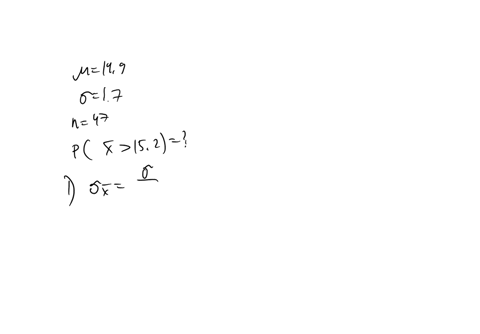 μ=14.9
σ=1.7
n=47
P( x̄ >15.2)=?
1) σx̄ = σ/